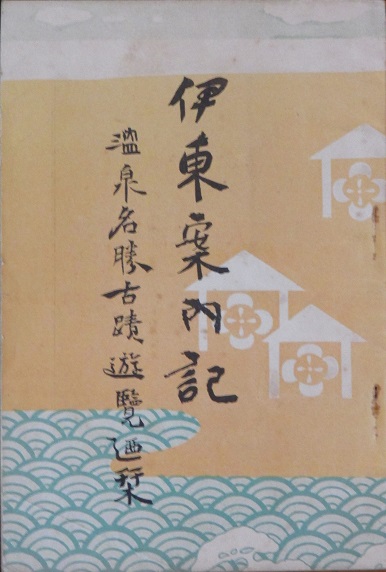 伊東案内記
温泉名勝古蹟遊覧廼栞